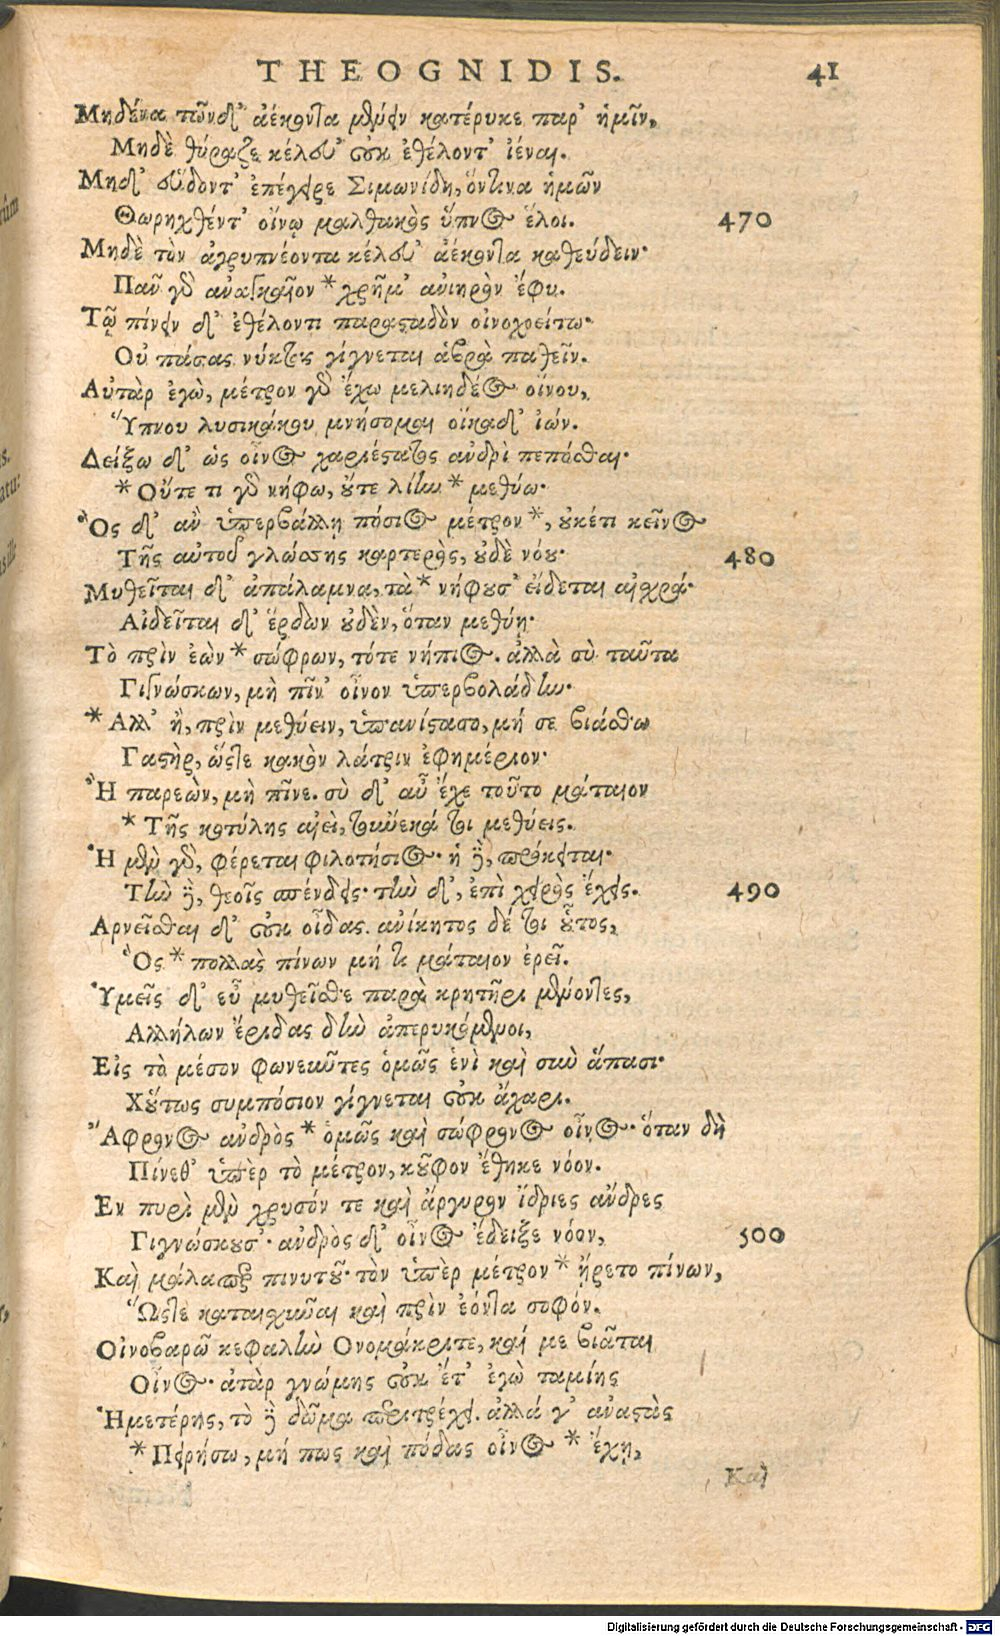 THEOGNIDIS. 41
Μηδένα τῶνδ' ἀέκοντα μένειν κατέρυκε παρ' ἡμῖν,
Μηδὲ θύραζε κέλευ' οὐκ ἐθέλοντ' ἰέναι.
Μηδ' εὕδοντ' ἐπέγειρε Σιμωνίδη, ὅντινα ἡμῶν
Θωρηχθέντ' οἴνῳ μαλθακὸς ὕπνος ἕλοι. 470
Μηδὲ τὸν ἀγρυπνέοντα κέλευ' ἀέκοντα καθεύδειν·
Πᾶν γὰρ ἀναγκαῖον * χρῆμ' ἀνιηρὸν ἔφυ.
Τῷ πίνειν δ' ἐθέλοντι παρασταδὸν οἰνοχοείτω·
Οὐ πάσας νύκτας γίγνεται ἁβρὰ παθεῖν.
Αὐτὰρ ἐγὼ, μέτρον γὰρ ἔχω μελιηδέος οἴνου,
Ὕπνου λυσικάκου μνήσομαι οἴκαδ' ἰών.
Δείξω δ' ὡς οἶνος χαριέστατος ἀνδρὶ πεπόσθαι·
* Οὔτε τι γὰρ νήφω, οὔτε λίην * μεθύω·
Ὃς δ' ἂν ὑπερβάλλῃ πόσιος μέτρον *, οὐκέτι κεῖνος
Τῆς αὐτοῦ γλώσσης καρτερὸς, οὐδὲ νόου· 480
Μυθεῖται δ' ἀπάλαμνα, τὰ * νήφουσ' εἴδεται αἰσχρά·
Αἰδεῖται δ' ἕρδων οὐδὲν, ὅταν μεθύῃ·
Τὸ πρὶν ἐὼν * σώφρων, τότε νήπιος. ἀλλὰ σὺ ταῦτα
Γιγνώσκων, μὴ πῖν' οἶνον ὑπερβολάδην·
* Ἀλλ' ἢ, πρὶν μεθύειν, ὑπανίστασο, μή σε βιάσθω
Γαστὴρ, ὥστε κακὸν λάτριν ἐφημέριον·
Ἢ παρεὼν, μὴ πῖνε. σὺ δ' αὖ ἔχε τοῦτο μάταιον
* Τῆς κοτύλης αἰεὶ, τοὔνεκά τοι μεθύεις.
Ἡ μὲν γὰρ, φέρεται φιλοτήσιος· ἡ δὲ, πρόκειται·
Τὴν δὲ, θεοῖς σπένδεις· τὴν δ', ἐπὶ χειρὸς ἔχεις. 490
Ἀρνεῖσθαι δ' οὐκ οἶδας. ἀνίκητος δέ τοι οὗτος,
Ὃς * πολλὰς πίνων μή τι μάταιον ἐρεῖ.
Ὑμεῖς δ' εὖ μυθεῖσθε παρὰ κρητῆρι μένοντες,
Ἀλλήλων ἔριδας δὴν ἀπερυκόμενοι,
Εἰς τὸ μέσον φωνεῦντες ὁμῶς ἑνὶ καὶ σὺν ἅπασι·
Χοὕτως συμπόσιον γίγνεται οὐκ ἄχαρι.
Ἄφρονος ἀνδρὸς * ὁμῶς καὶ σώφρονος οἶνος· ὅταν δὴ
Πίνεθ' ὑπὲρ τὸ μέτρον, κοῦφον ἔθηκε νόον.
Ἐν πυρὶ μὲν χρυσόν τε καὶ ἄργυρον ἴδριες ἄνδρες
Γιγνώσκουσ'· ἀνδρὸς δ' οἶνος ἔδειξε νόον, 500
Καὶ μάλαπερ πινυτοῦ· τὸν ὑπὲρ μέτρον * ἤρετο πίνων,
Ὥστε καταισχῦναι καὶ πρὶν ἐόντα σοφόν.
Οἰνοβαρῶ κεφαλὴν Ὀνομάκριτε, καί με βιᾶται
Οἶνος· ἀτὰρ γνώμης οὐκ ἔτ' ἐγὼ ταμίης
Ἡμετέρης, τὸ δὲ δῶμα περιτρέχει. ἀλλά γ' ἀναστὰς
* Πειρήσω, μή πως καὶ πόδας οἶνος * ἔχῃ,
Καὶ
Digitalisierung gefördert durch die Deutsche Forschungsgemeinschaft - DFG